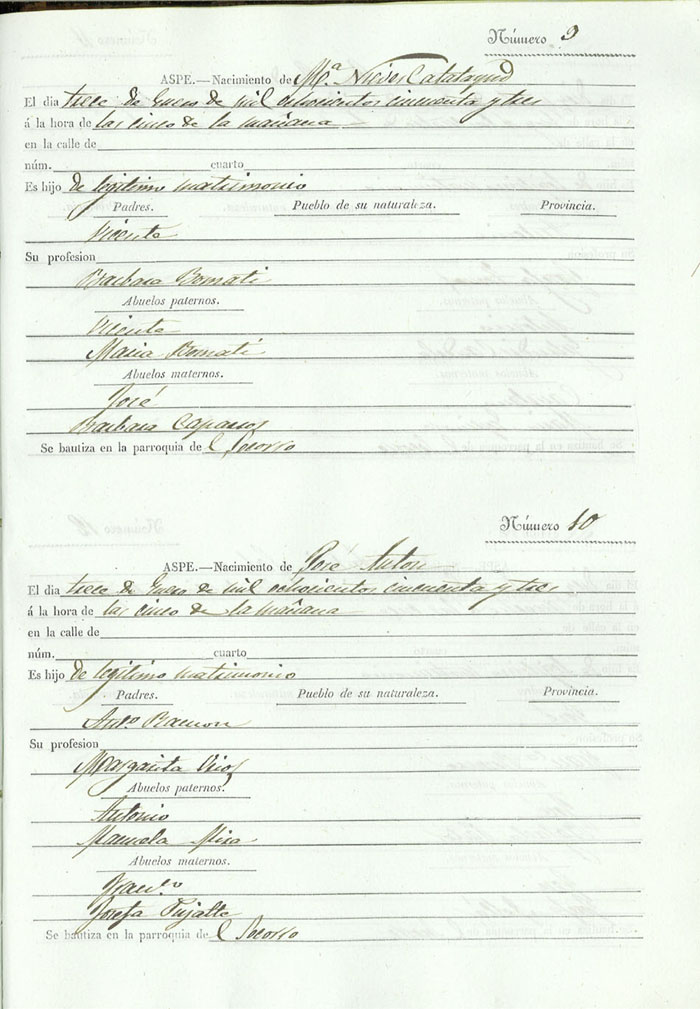 Número 9
ASPE.—Nacimiento de Mª. Nieves Catalayud
El dia trece de Enero de mil ochocientos cincuenta y tres
á la hora de las cinco de la mañana
en la calle de
núm. cuarto
Es hijo de legitimo matrimonio
Padres. Pueblo de su naturaleza. Provincia.
Vicente
Su profesion
Barbara Bomati
Abuelos paternos.
Vicente
Maria Bomati
Abuelos maternos.
José
Barbara
Se bautiza en la parroquia del Socorro
Número 10
ASPE.—Nacimiento de José Anton
El dia trece de Enero de mil ochocientos cincuenta y tres
á la hora de las cinco de la mañana
en la calle de
núm. cuarto
Es hijo de legitimo matrimonio
Padres. Pueblo de su naturaleza. Provincia.
Antº Ramon
Su profesion
Margarita
Abuelos paternos.
Antonio
Manuela Mira
Abuelos maternos.
Franº
Josefa Pujalte
Se bautiza en la parroquia del Socorro